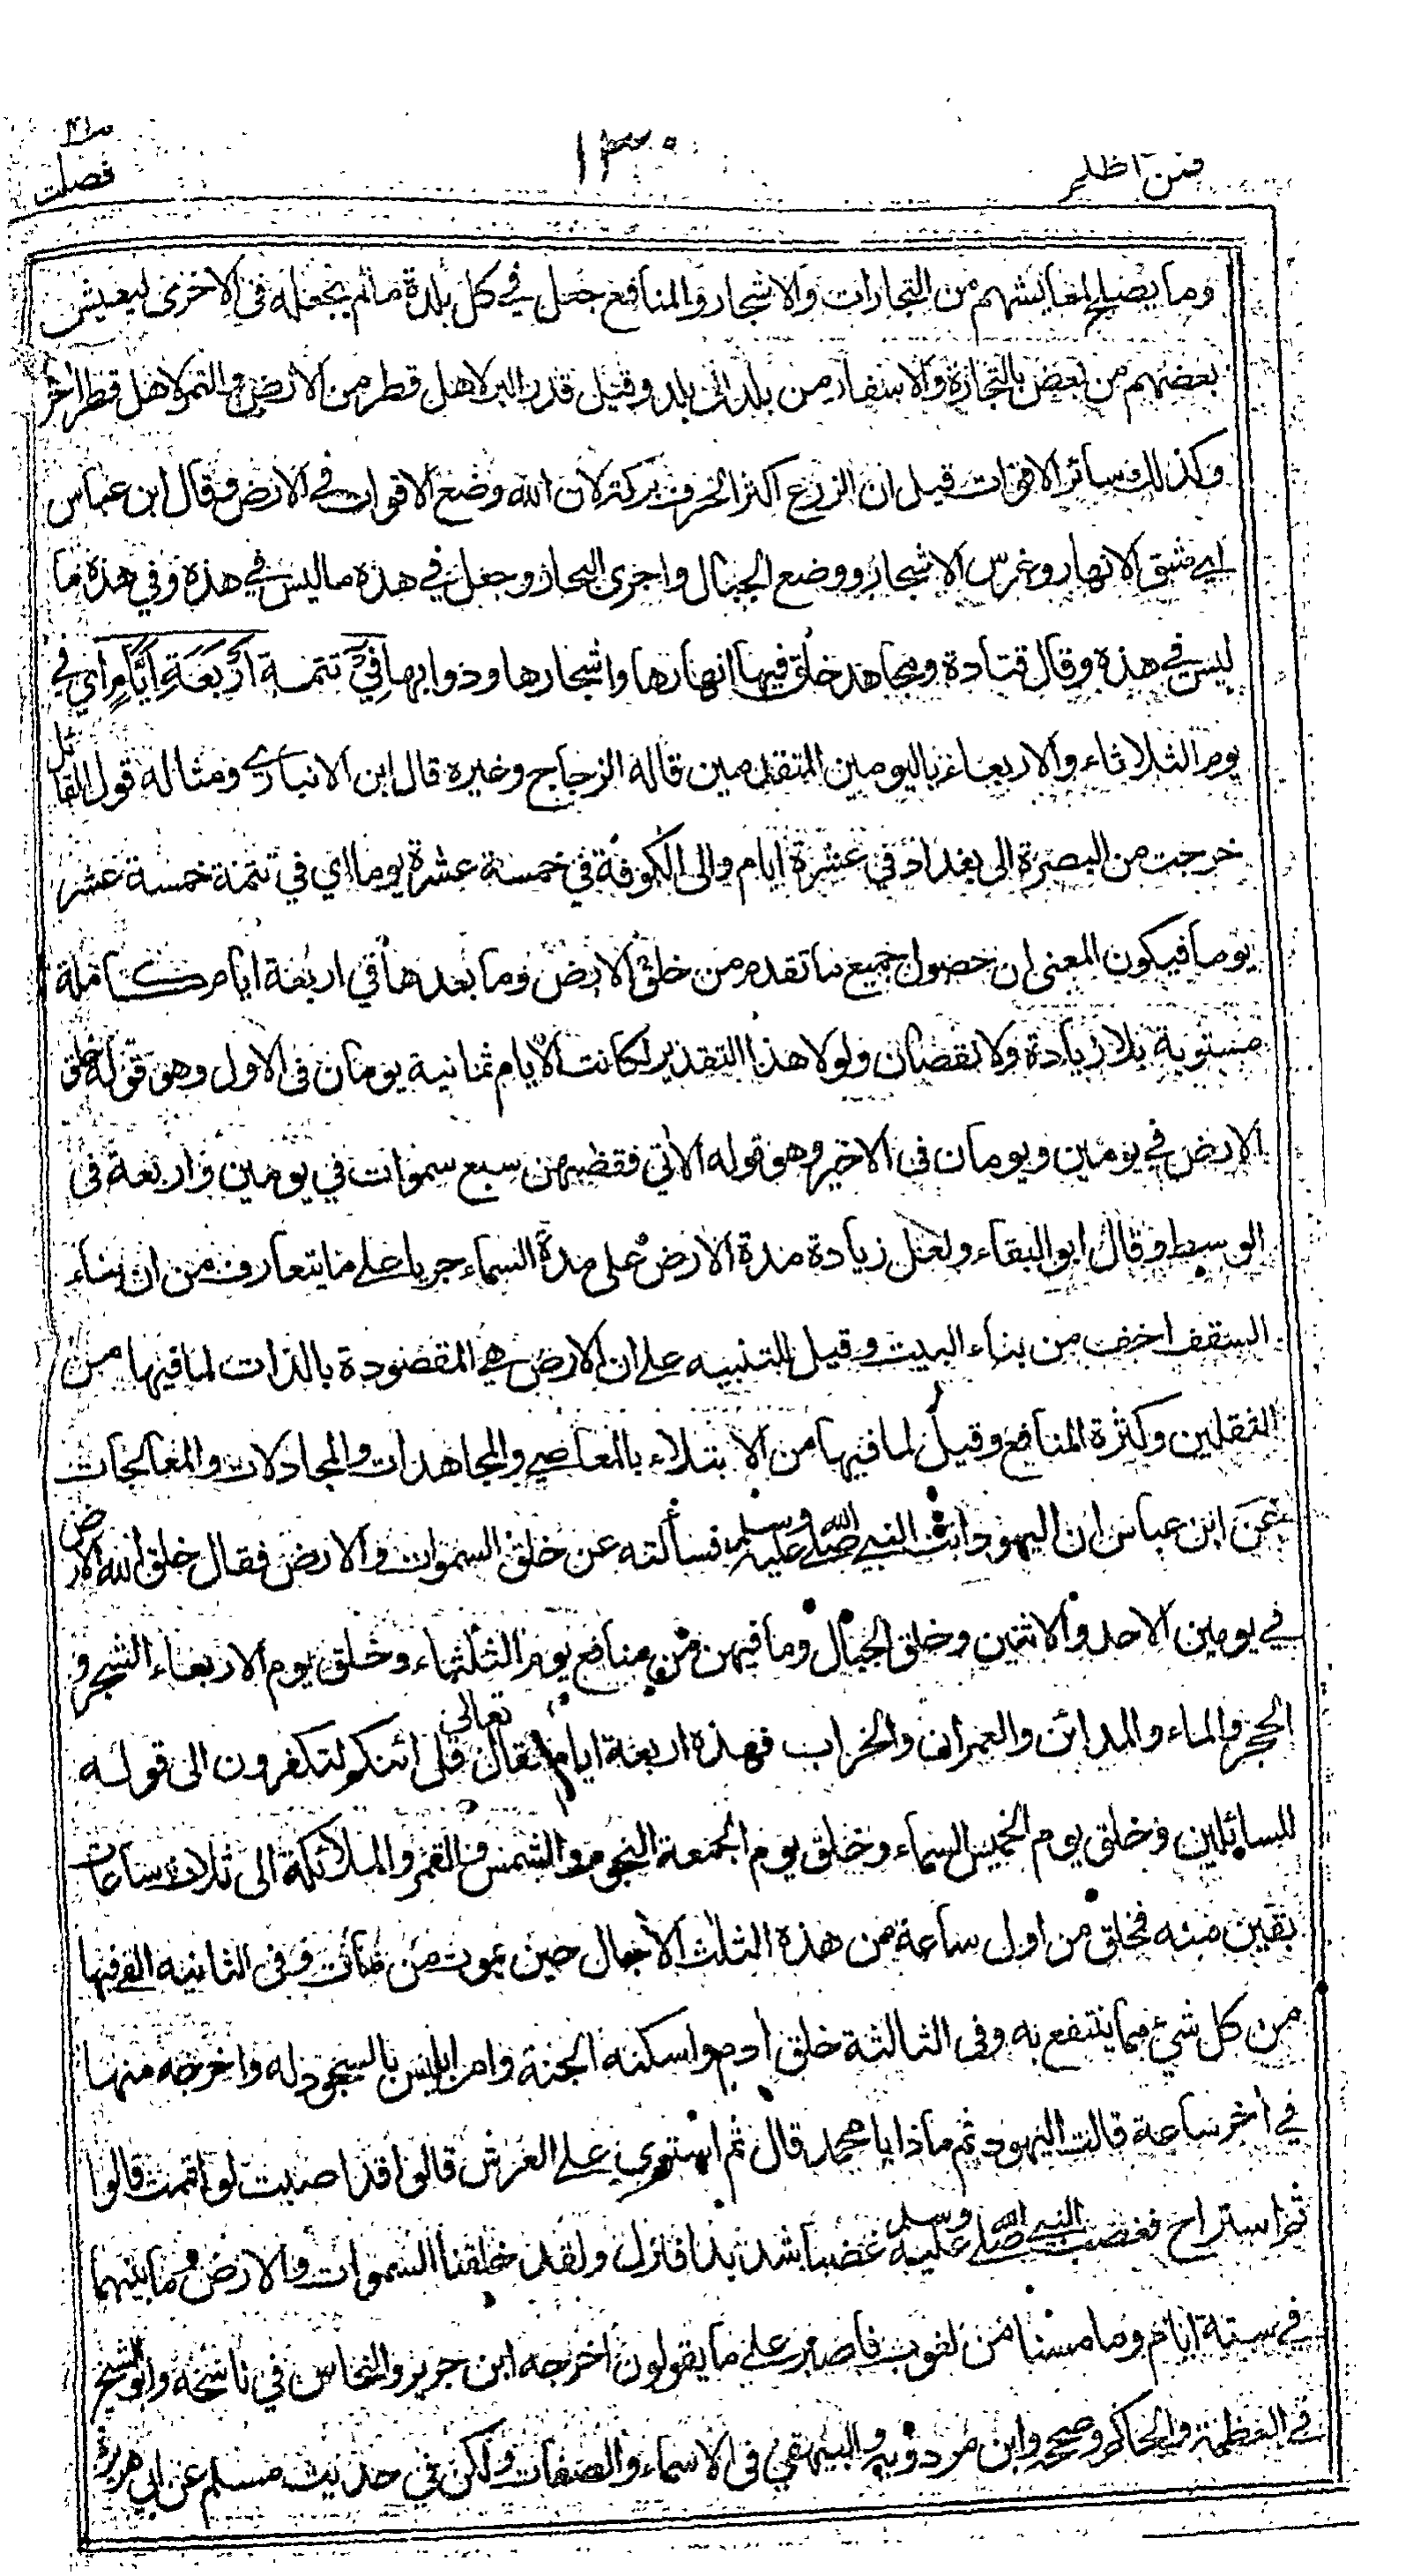 فمن اظلم
١٣٠
فصلت
وما يصلح لمعايشهم من التجارات والاشجار والمنافع جعل في كل بلدة ما لم يجعله في الاخرى ليعيش
بعضهم من بعض بالتجارة والاسفار من بلد الى بلد وقيل قدر البر لاهل قطر من الارض والتمر لاهل قطر اخر
وكذلك سائر الاقوات قيل ان الزرع اكثر الحرف بركة لان الله وضع الاقوات في الارض وقال ابن عباس
اي شق الانهار وغرس الاشجار ووضع الجبال واجرى البحار وجعل في هذه ما ليس في هذه وفي هذه ما
ليس في هذه وقال قتادة ومجاهد خلق فيها انهارها واشجارها ودوابها فِي تتمة اَرْبَعَةِ اَيَّامٍ اي في
يوم الثلاثاء والاربعاء باليومين المتقدمين قاله الزجاج وغيره قال ابن الانباري ومثاله قول القائل
خرجت من البصرة الى بغداد في عشرة ايام والى الكوفة في خمسة عشرة يوما اي في تتمة خمسة عشر
يوما فيكون المعنى ان حصول جميع ما تقدم من خلق الارض وما بعدها في اربعة ايام كاملة
مستوية بلا زيادة ولا نقصان ولولا هذا التقدير لكانت الايام ثمانية يومان في الاول وهو قوله خلق
الارض في يومين ويومان في الاخير وهو قوله الأتي فقضهن سبع سموات في يومين واربعة في
الوسط وقال ابو البقاء ولعل زيادة مدة الارض على مدة السماء جريا على ما يتعارف من ان بناء
السقف اخف من بناء البيت وقيل للتنبيه على ان الارض هي المقصودة بالذات لما فيها من
الثقلين وكثرة المنافع وقيل لما فيها من الابتلاء بالمعاصي والمجاهدات والمجادلات والمعالجات
عن ابن عباس ان اليهود اتت النبي صلى الله عليه وسلم فسألته عن خلق السموات والارض فقال خلق الله الارض
في يومين الاحد والاثنين وخلق الجبال وما فيهن من منافع يوم الثلثاء وخلق يوم الاربعاء الشجر و
الحجر والماء والمدائن والعمران والخراب فهذه اربعة ايام فقال تعالى قل ائنكم لتكفرون الى قوله
للسائلين وخلق يوم الخميس السماء وخلق يوم الجمعة النجوم والشمس والقمر والملائكة الى ثلاث ساعات
بقين منه فخلق من اول ساعة من هذه الثلث الآجال حين يموت من مات وفي الثانيه القى فيها
من كل شئ مما ينتفع به وفى الثالثة خلق آدم واسكنه الجنة وامر ابليس بالسجود له واخرجه منها
في آخر ساعة قالت اليهود ثم ماذا يا محمد قال ثم استوى على العرش قالوا قد اصبت لو اتممت قالوا
ثم استراح فغضب النبي صلى الله عليه وسلم غضبا شديدا فنزل ولقد خلقنا السموات والارض وما بينهما
في ستة ايام وما مسنا من لغوب فاصبر على ما يقولون اخرجه ابن جرير والنحاس في ناسخه وابو الشيخ
في العظمة والحاكم وصححه وابن مردويه والبيهقي في الاسماء والصفات ولكن في حديث مسلم عن ابي هريرة